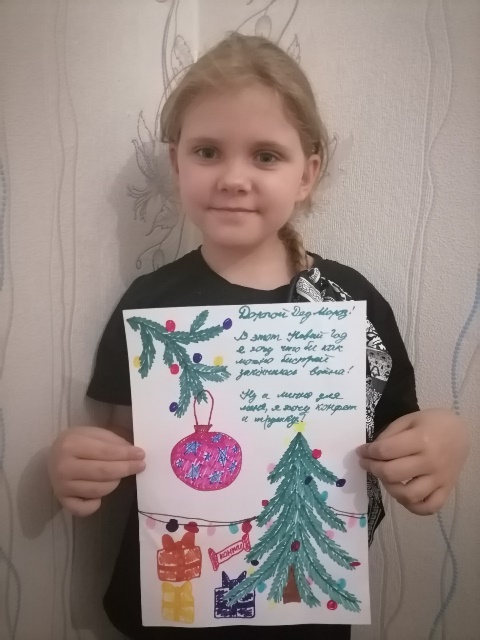 Дорогой Дед Мороз!
В этот Новый Год
я хочу что бы как
можно быстрей
закончилась война!
Ну а лично для
меня, я хочу конфет
и игрушку!
КОНФИ